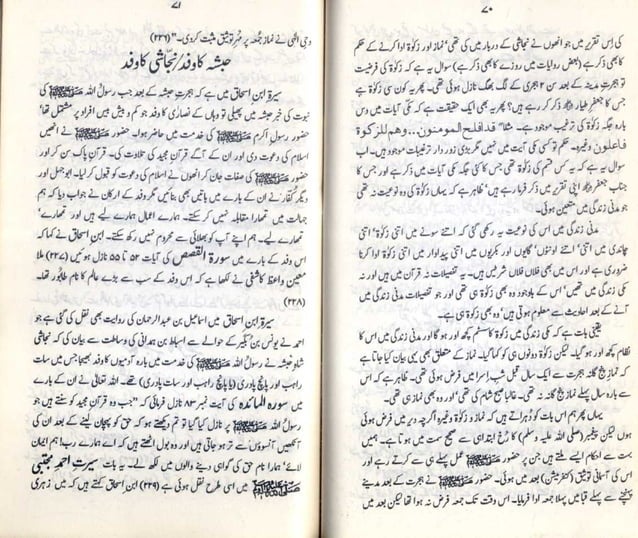 ۷۰
کی اس تقریر میں جو انھوں نے نجاشی کے دربار میں کی تھی' نماز اور زکوٰۃ ادا کرنے کے حکم
کا بھی ذکر ہے (بعض روایات میں روزے کا بھی ذکر ہے) سوال یہ ہے کہ زکوٰۃ کی فرضیت
تو ہجرتِ مدینہ کے بعد سن ۲ ہجری کے لگ بھگ نازل ہوئی تھی۔ پھر یہ کون سی زکوٰۃ ہے
جس کا جعفر طیار ذکر کر رہے ہیں؟ پھر یہ بھی ایک حقیقت ہے کہ مکّی آیات میں دس
بارہ جگہ زکوٰۃ کی ترغیب موجود ہے۔ مثلاً" قد افلح المومنون۔۔ وهم للزكوة
فاعلون وغیرہ۔ حکم تو کسی مکی آیت میں نہیں مگر بڑی زور دار ترغیبات موجود ہیں۔ اب
سوال یہ ہے کہ یہ کس قسم کی زکوٰۃ تھی جس کا کئی جگہ مکی آیات میں ذکر ہے اور جس کا
جناب جعفر اپنی تقریر میں ذکر فرما رہے ہیں' ظاہر ہے کہ یہاں زکوٰۃ کی وہ نوعیت نہ تھی جو
مدنی زندگی میں متعین ہوئی۔
مدنی زندگی میں اس کی نوعیت یہ رکھی گئی کہ اتنے سونے میں اتنی زکوٰۃ' اتنی
چاندی میں اتنی' اتنے اونٹوں' گایوں اور بکریوں میں اتنی' اتنی پیداوار میں اتنی زکوٰۃ ادا کرنا
ضروری ہے اور اس میں بھی فلاں فلاں شرطیں ہیں۔ یہ تفصیلات نہ قرآن میں ہیں اور نہ
مکی زندگی میں تھیں' اس کے باوجود وہ بھی زکوٰۃ ہی تھی اور جو تفصیلات مدنی زندگی میں
آنے کے بعد احادیث سے معلوم ہوتی ہیں' وہ بھی زکوٰۃ ہے۔
یقینی بات ہے کہ مکّی زندگی میں زکوٰۃ کا سسٹم کچھ اور ہو گا اور مدنی زندگی میں اس کا
نظام کچھ اور ہو گیا۔ لیکن زکوٰۃ دونوں ہی کو کہا گیا۔ نماز کے متعلق بھی یہی بیان کیا جاتا ہے
کہ نماز پنج گانہ ہجرت سے ایک سال قبل شبِ اسرا میں فرض ہوئی تھی۔ ظاہر ہے کہ اس
سے پہلے نماز پنج گانہ نہ تھی۔ غالباً صبح شام کی تھی' اور وہ بھی نماز ہی تھی۔
یہاں پھر ہم اس بات کو دُہراتے ہیں کہ نماز و زکوٰۃ وغیرہ اگرچہ دیر میں فرض ہوئی
ہوں لیکن پیغمبر (صلی اللہ علیہ وسلم) کا رُخ ابتدا ہی سے صحیح سمت میں ہوتا ہے۔ ہمیں
بہت سے احکام ایسے ملتے ہیں جن پر حضور ﷺ عمل پہلے ہی سے کرتے رہے اور
اس کی آسمانی توثیق (کنفرمیشن) بعد میں ہوئی۔ حضور ﷺ نے ہجرت کے بعد مدینے
پہنچنے سے پہلے قبا میں پہلا جمعہ ادا فرمایا۔ اس وقت تک جمعہ فرض نہ ہوا تھا لیکن بعد میں
۷۱
وحیِ الٰہی نے نمازِ جمعہ پر مہرِ توثیق ثبت کر دی۔" (۲۳۶)
حبشہ کا وفد/ نجّاشی کا وفد
سیرۃ ابن اسحاق میں ہے کہ ہجرتِ حبشہ کے بعد جب رسولُ اللہ ﷺ کی
نبوت کی خبر حبشہ میں پھیلی تو وہاں کے نصاریٰ کا وفد جو کم و بیش بیس افراد پر مشتمل تھا'
حضور رسولِ اکرم ﷺ کی خدمت میں حاضر ہوا۔ حضور ﷺ نے انھیں
اسلام کی دعوت دی اور ان کے آگے قرآن مجید کی تلاوت کی۔ قرآنِ پاک سن کر اور
حضور ﷺ کی صفات جان کر انھوں نے اسلام کی دعوت کو قبول کر لیا۔ ابوجہل اور
دیگر کفّار نے ان کے بارے میں باتیں بھی بنائیں مگر وفد کے ارکان نے جواب دیا کہ ہم
جہالت میں تمھارا مقابلہ نہیں کر سکتے۔ ہمارے اعمال ہمارے لیے ہیں اور تمھارے'
تمھارے لیے۔ ہم اپنے آپ کو بھلائی سے محروم نہیں رکھ سکتے۔ ابن اسحٰق نے کہا کہ
اس وفد کے بارے میں سورۃ القصص کی آیات ۵۲ تا ۵۵ نازل ہوئیں (۲۳۷) ملا
معین واعظ کاشفی نے لکھا ہے کہ اس وفد کے سب سے بڑے عالم کا نام طابور تھا۔
(۲۳۸)
سیرۃ ابن اسحاق میں اسماعیل بن عبدالرحمان کی روایت بھی نقل کی گئی ہے جو
احمد نے یونس بن بکیر کے حوالے سے اسباط بن ہمدانی کی وساطت سے بیان کی کہ نجاشی
شاہِ حبشہ نے رسولُ اللہ ﷺ کی خدمت میں بارہ آدمیوں کا وفد بھیجا جس میں سات
راہب اور پانچ پادری (یا پانچ راہب اور سات پادری) تھے۔ اللہ تعالیٰ نے ان کے بارے
میں سورہ المائدہ کی آیت نمبر ۸۳ نازل فرمائی کہ "جب وہ قرآن مجید کو سنتے ہیں جو
رسولُ اللہ ﷺ پر نازل کیا گیا تو تم دیکھتے ہو کہ حق کو پہچان لینے کے بعد ان کی
آنکھیں آنسوؤں سے تر ہو جاتی ہیں اور وہ بول اٹھتے ہیں کہ اے ہمارے رب! ہم ایمان
لائے' ہمارا نام حق کی گواہی دینے والوں میں لکھ لے۔ یہ بات سیرت احمدِ مجتبیٰ
ﷺ میں اسی طرح نقل ہوئی ہے (۲۳۹) ابن اسحٰق کہتے ہیں کہ میں نے زہری